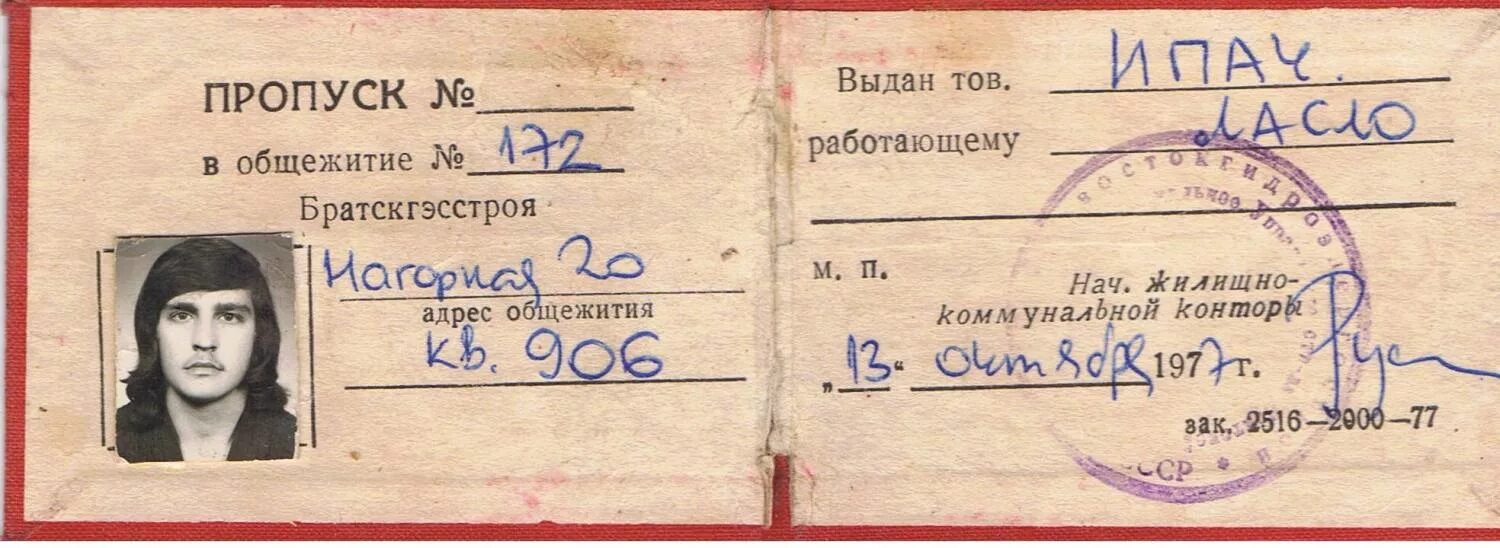 ПРОПУСК №
в общежитие № 172
Братскгэсстроя
Нагорная 20
адрес общежития
кв. 906
Выдан тов. ИПАЧ.
работающему ЛАСЛО
м. п.
Нач. жилищно-
коммунальной конторы
„13“ октября 1977г.
зак. 2516—2000—77
ВОСТОКГИДРОЭ
СССР